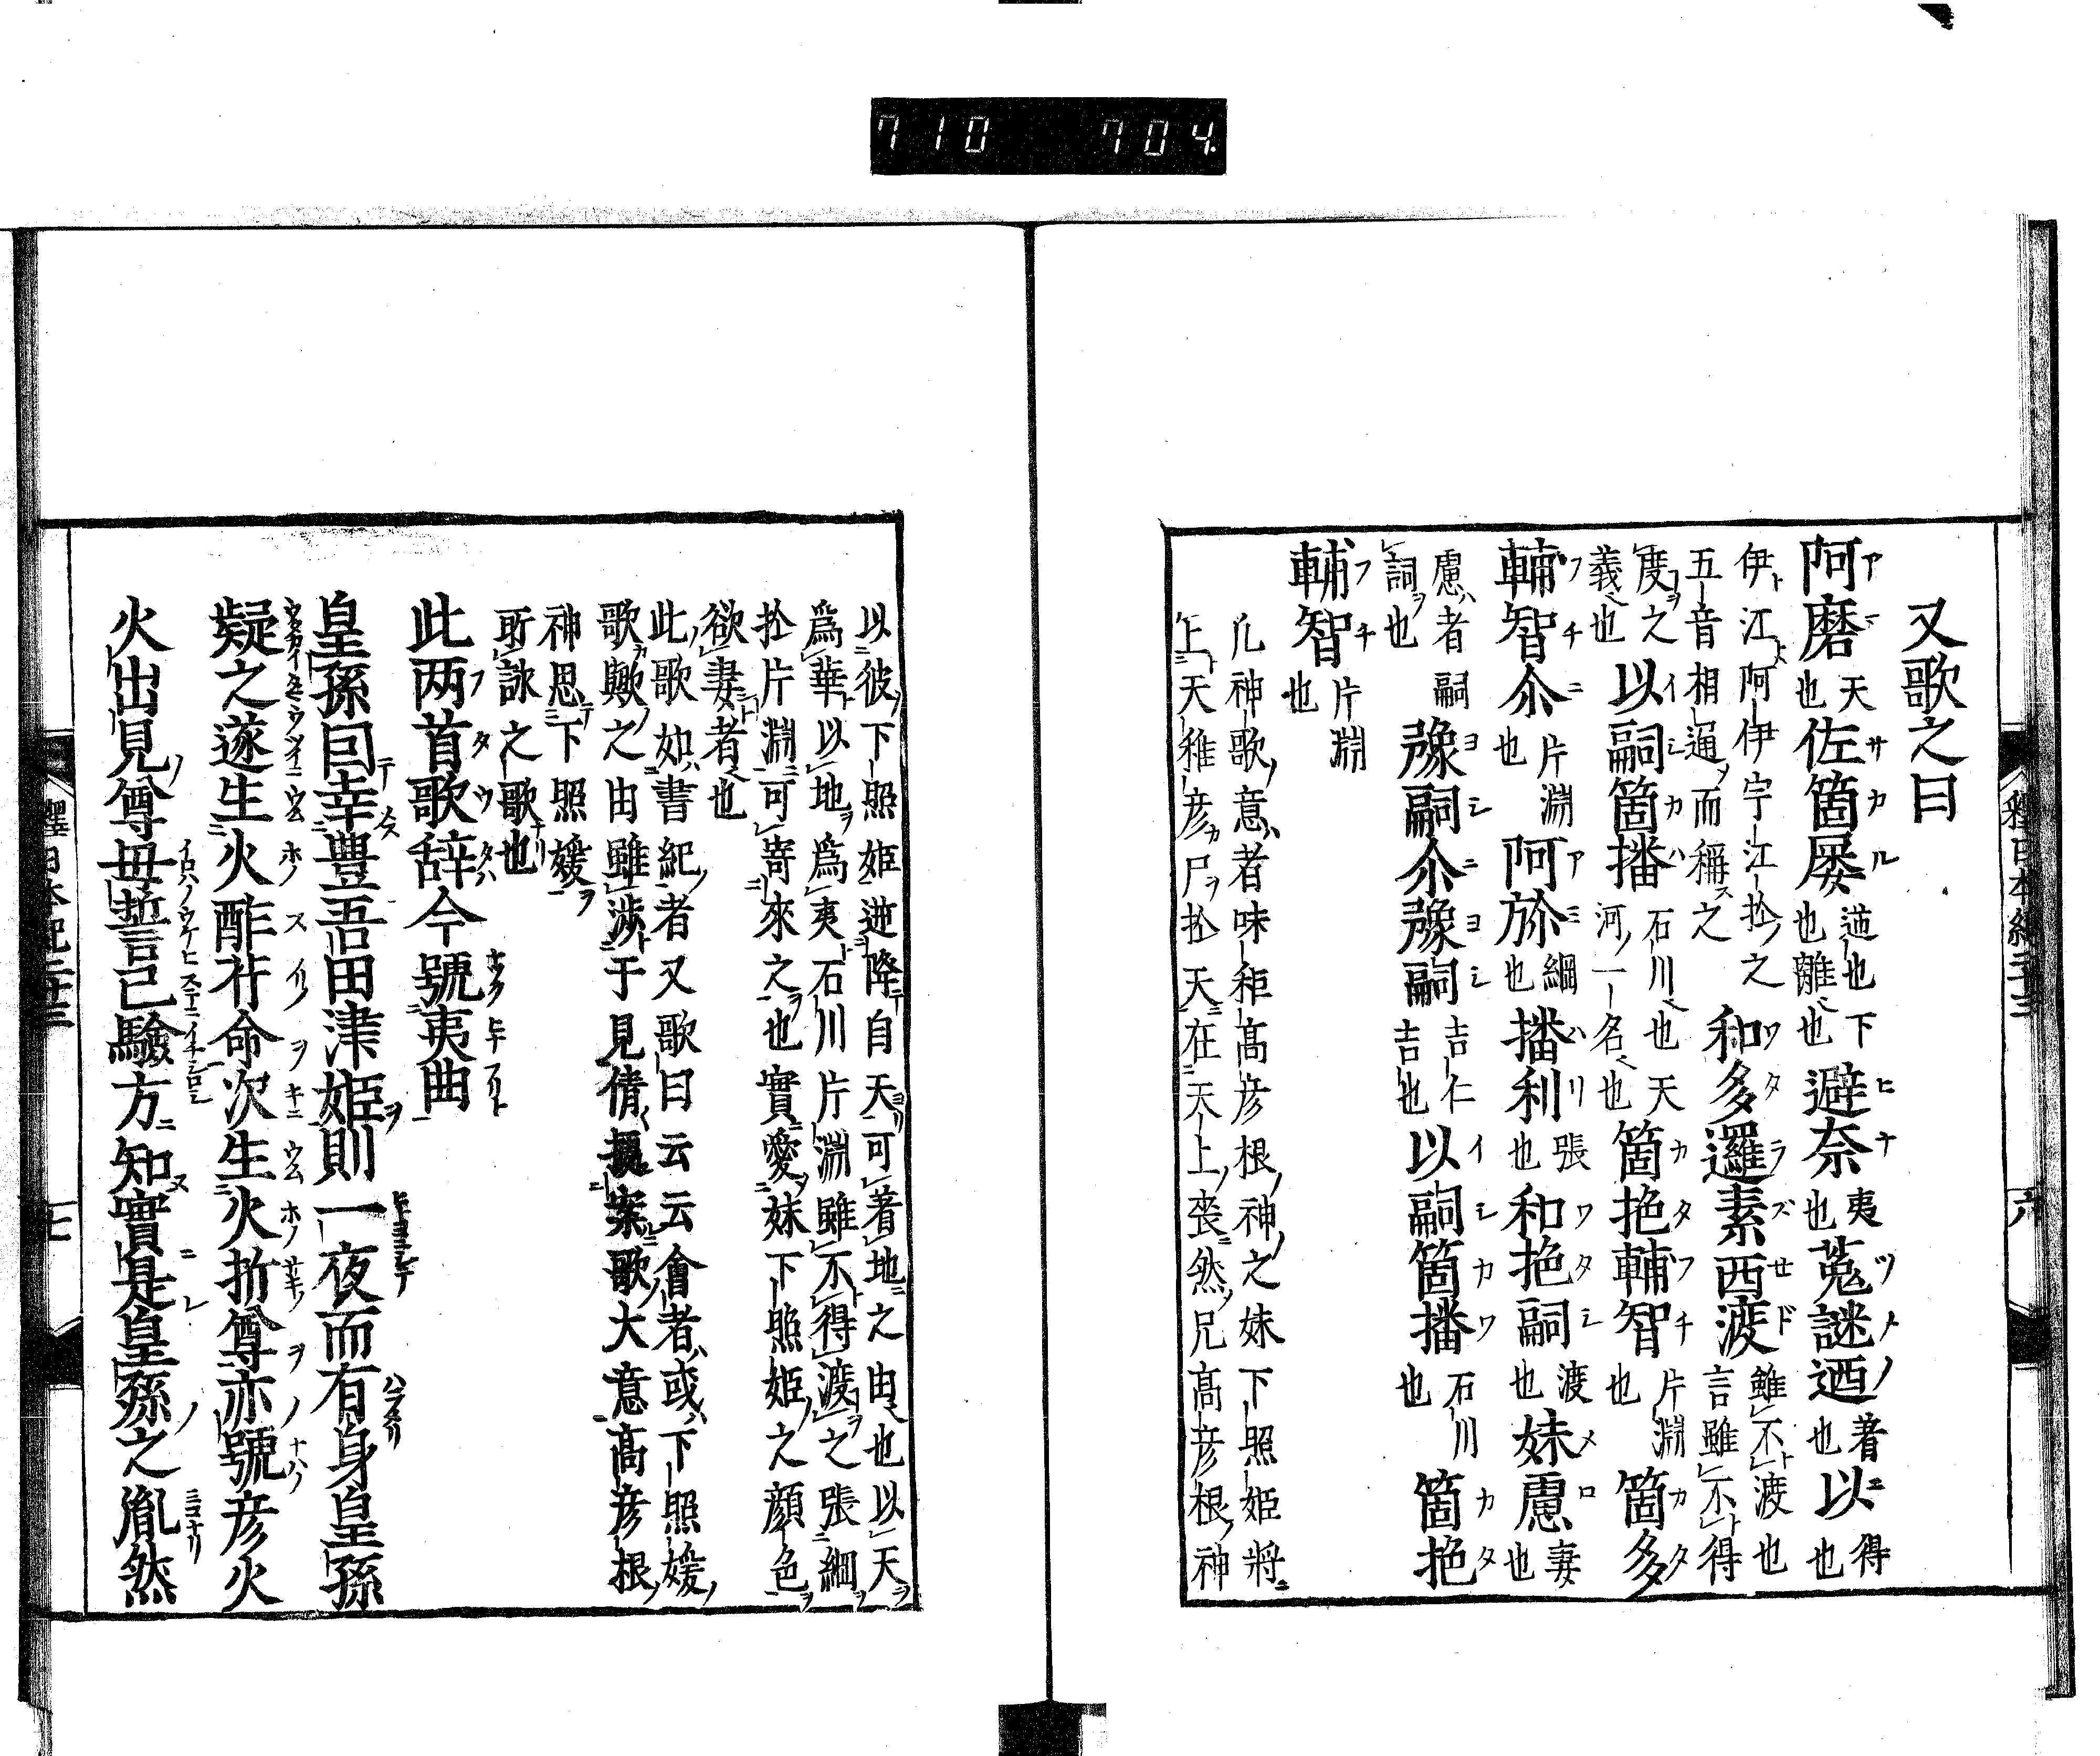 710 704
又歌之曰
阿磨天也佐箇屡逓也也離也下避奈夷也菟謎廼着也以得也
伊江阿伊宇江於之五音相通而稱之和多邏素西渡雖不渡也言雖不得
度之義也以嗣箇播石川也天河一名也箇拖輔智片淵也箇多
輔智尒片淵也阿弥網也播利張也和拖嗣渡也妹慮妻也
慮者嗣詞也豫嗣尒豫嗣吉仁吉也以嗣箇播石川也箇拖
輔智片淵也
凡神歌意者味秬高彦根神之妹下照姫將
上天稚彦尸於天在天上喪然兄高彦根神
以彼下照姫逓降自天可着地之由也以天
爲華以地爲夷石川片淵雖不得渡之張網
於片淵可寄來之也實愛妹下照姫之顔色
欲妻者也
此歌如書紀者又歌曰云云會者或下照媛
歌歟之由雖渉于見倩案歌大意高彦根
神思下照媛
所詠之歌也
此两首歌辞今號夷曲
皇孫因幸豊吾田津姫則一夜而有身皇孫
疑之遂生火酢芹命次生火折尊亦號彦火
火出見尊母誓已驗方知實是皇孫之胤然
釋日本紀二十三
六
釋日本紀二十三
七